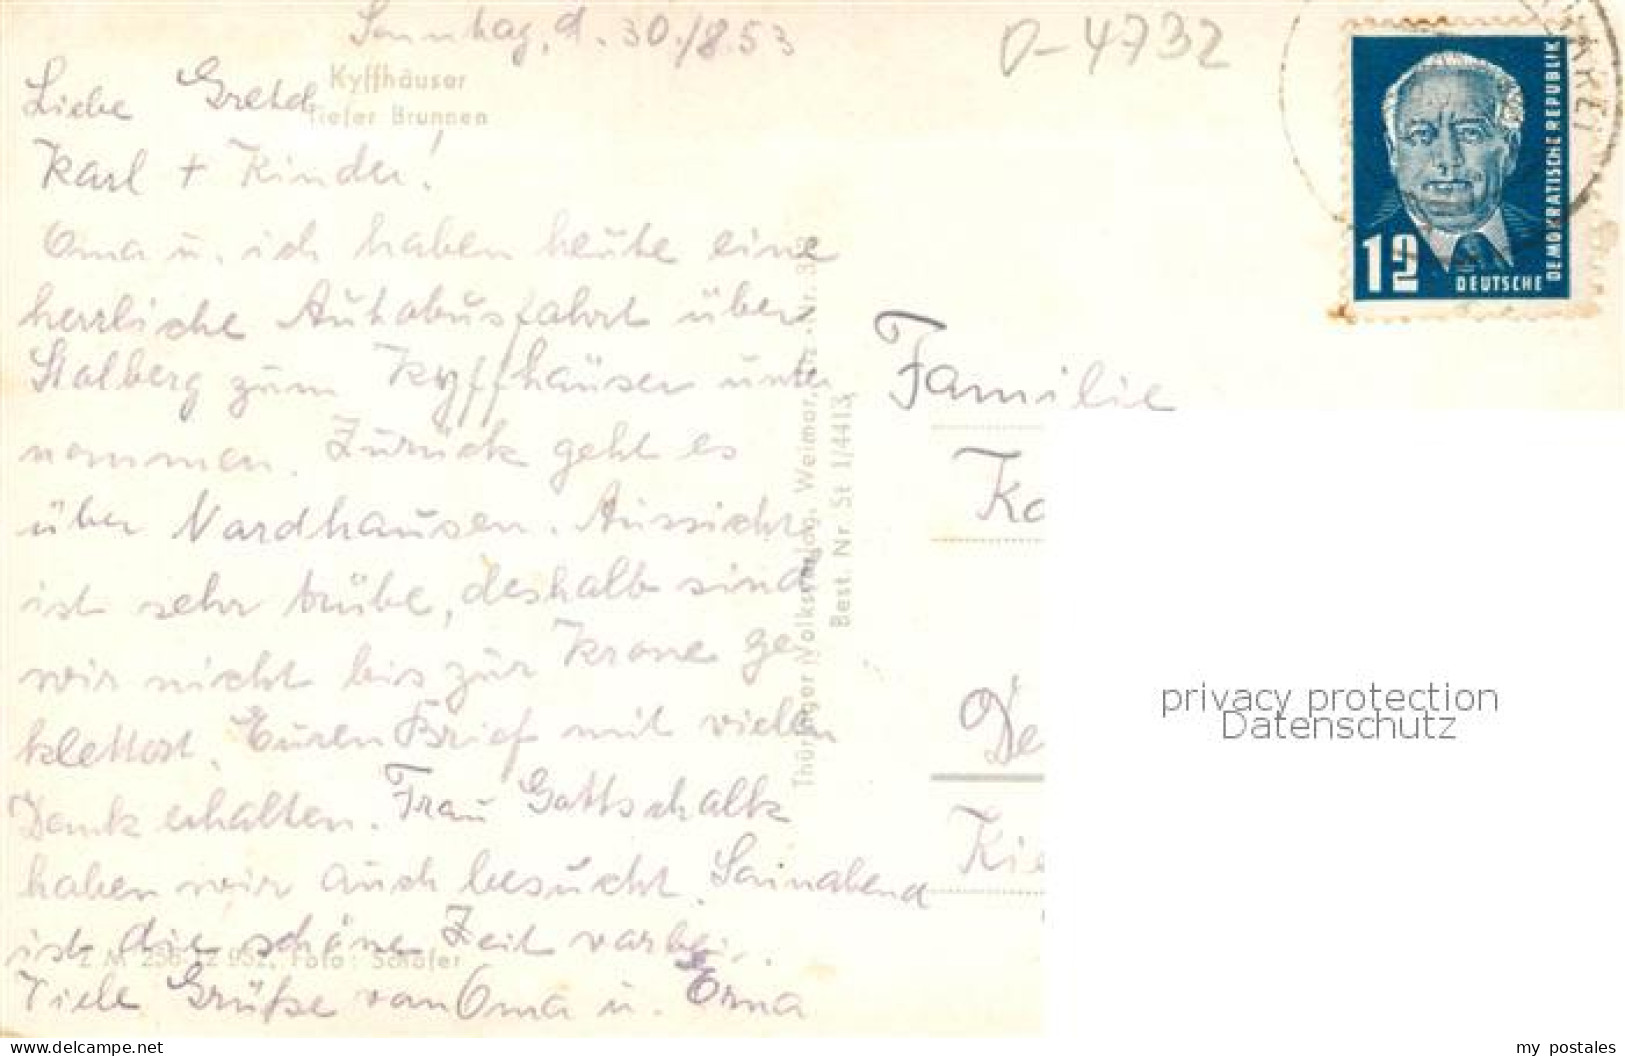 Sonntag, d. 30./8.53
O-4732
Kyffhäuser
Tiefer Brunnen
Liebe Gretel,
Karl + Kinder!
Oma u. ich haben heute eine
herrliche Autobusfahrt über
Stolberg zum Kyffhäuser unter
nommen. Zurück geht es
über Nordhausen. Aussicht
ist sehr trübe, deshalb sind
wir nicht bis zur Krone ge
klettert. Euren Brief mit vielen
Dank erhalten. Frau Gottschalk
haben wir auch besucht. Sonnabend
ist die schöne Zeit vorbei..
Viele Grüße von Oma u. Erna
Thüringer Volksverlag, Weimar,
Best. Nr. St 1/4413
Foto: Schäfer
12
DEUTSCHE
DEMOKRATISCHE REPUBLIK
Familie
Ko
De
Kie
privacy protection
Datenschutz
www.delcampe.net
my_postales